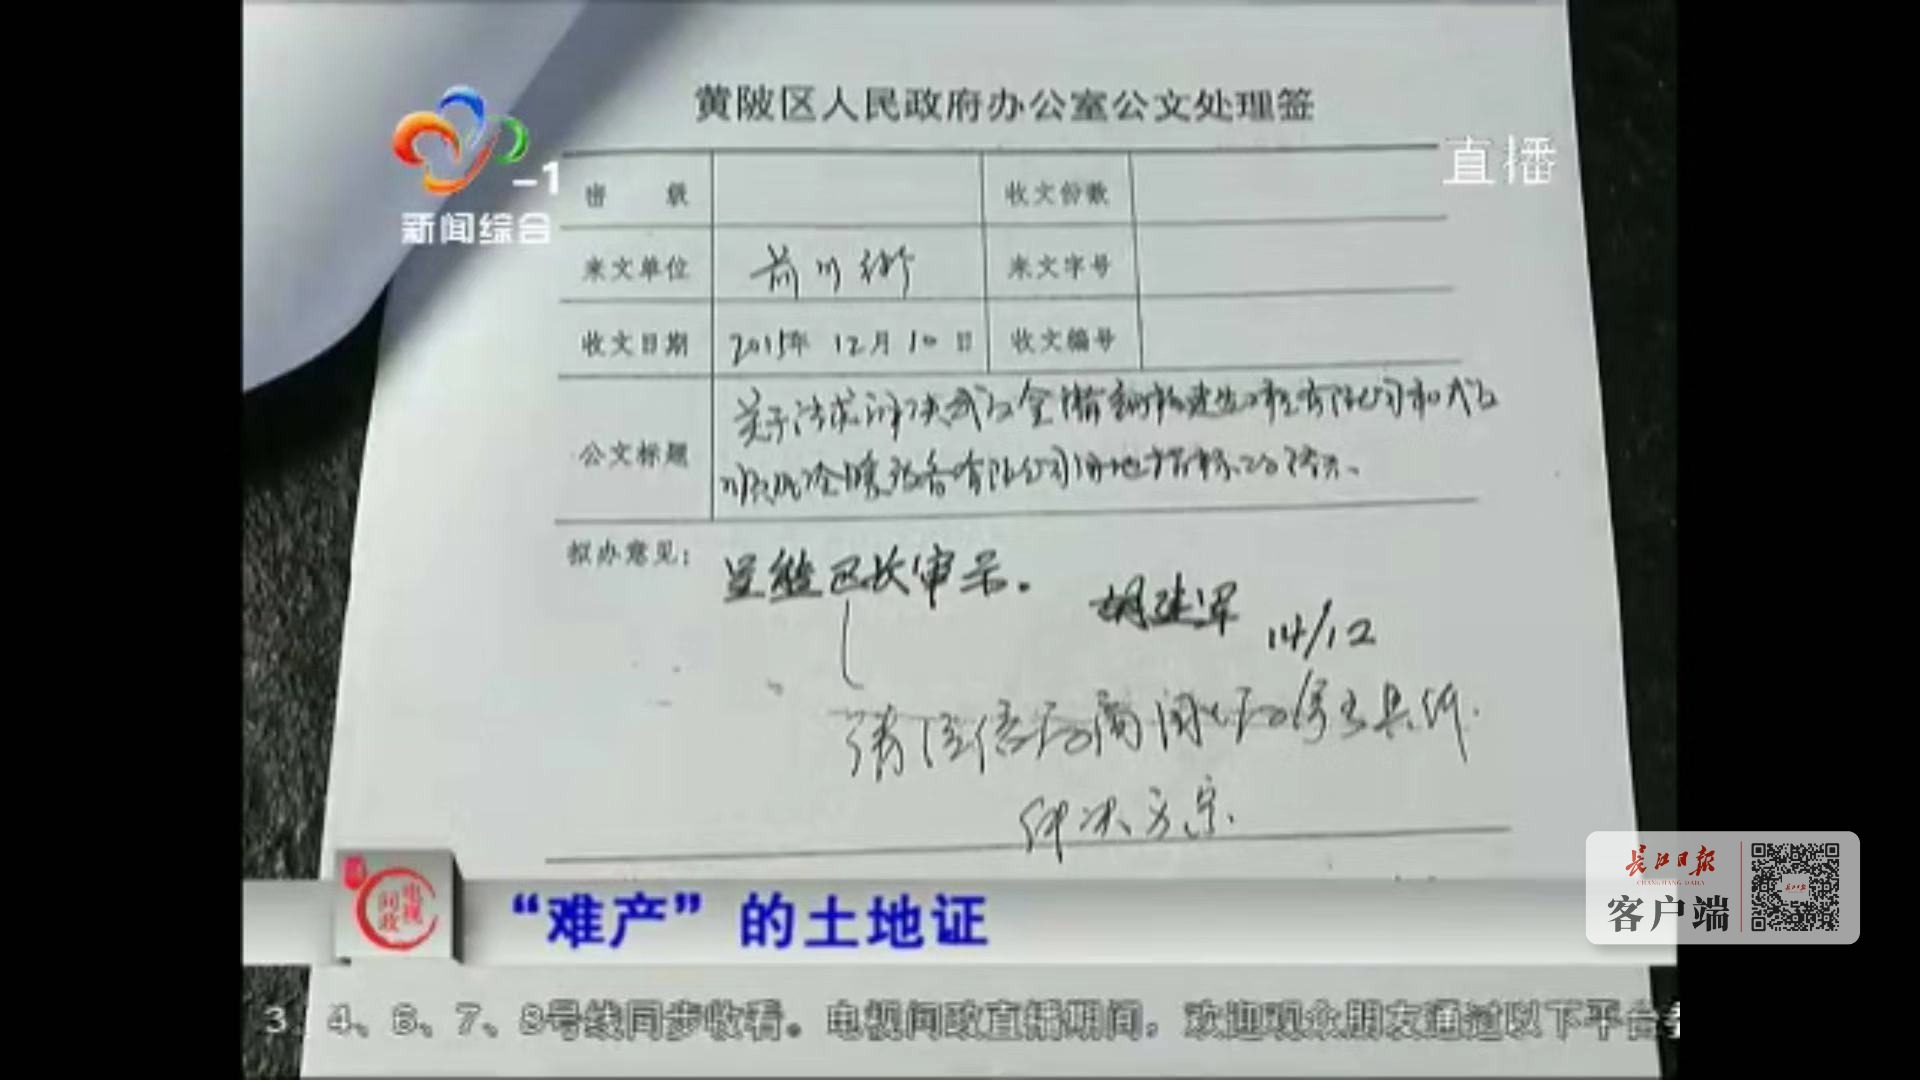 黄陂区人民政府办公室公文处理签
-1
新闻综合
直播
密 级
收文份数
来文单位 前川街
来文字号
收文日期 2015年 12月 10日
收文编号
公文标题
关于请求解决武汉金 有限公司和武汉
冷暖设备有限公司用地指标的请示、
拟办意见：
呈熊区长审示.
胡建军 14/12
电视问政
“难产”的土地证
长江日报
CHANGJIANG DAILY
客户端
3、4、6、7、8号线同步收看。电视问政直播期间，欢迎观众朋友通过以下平台